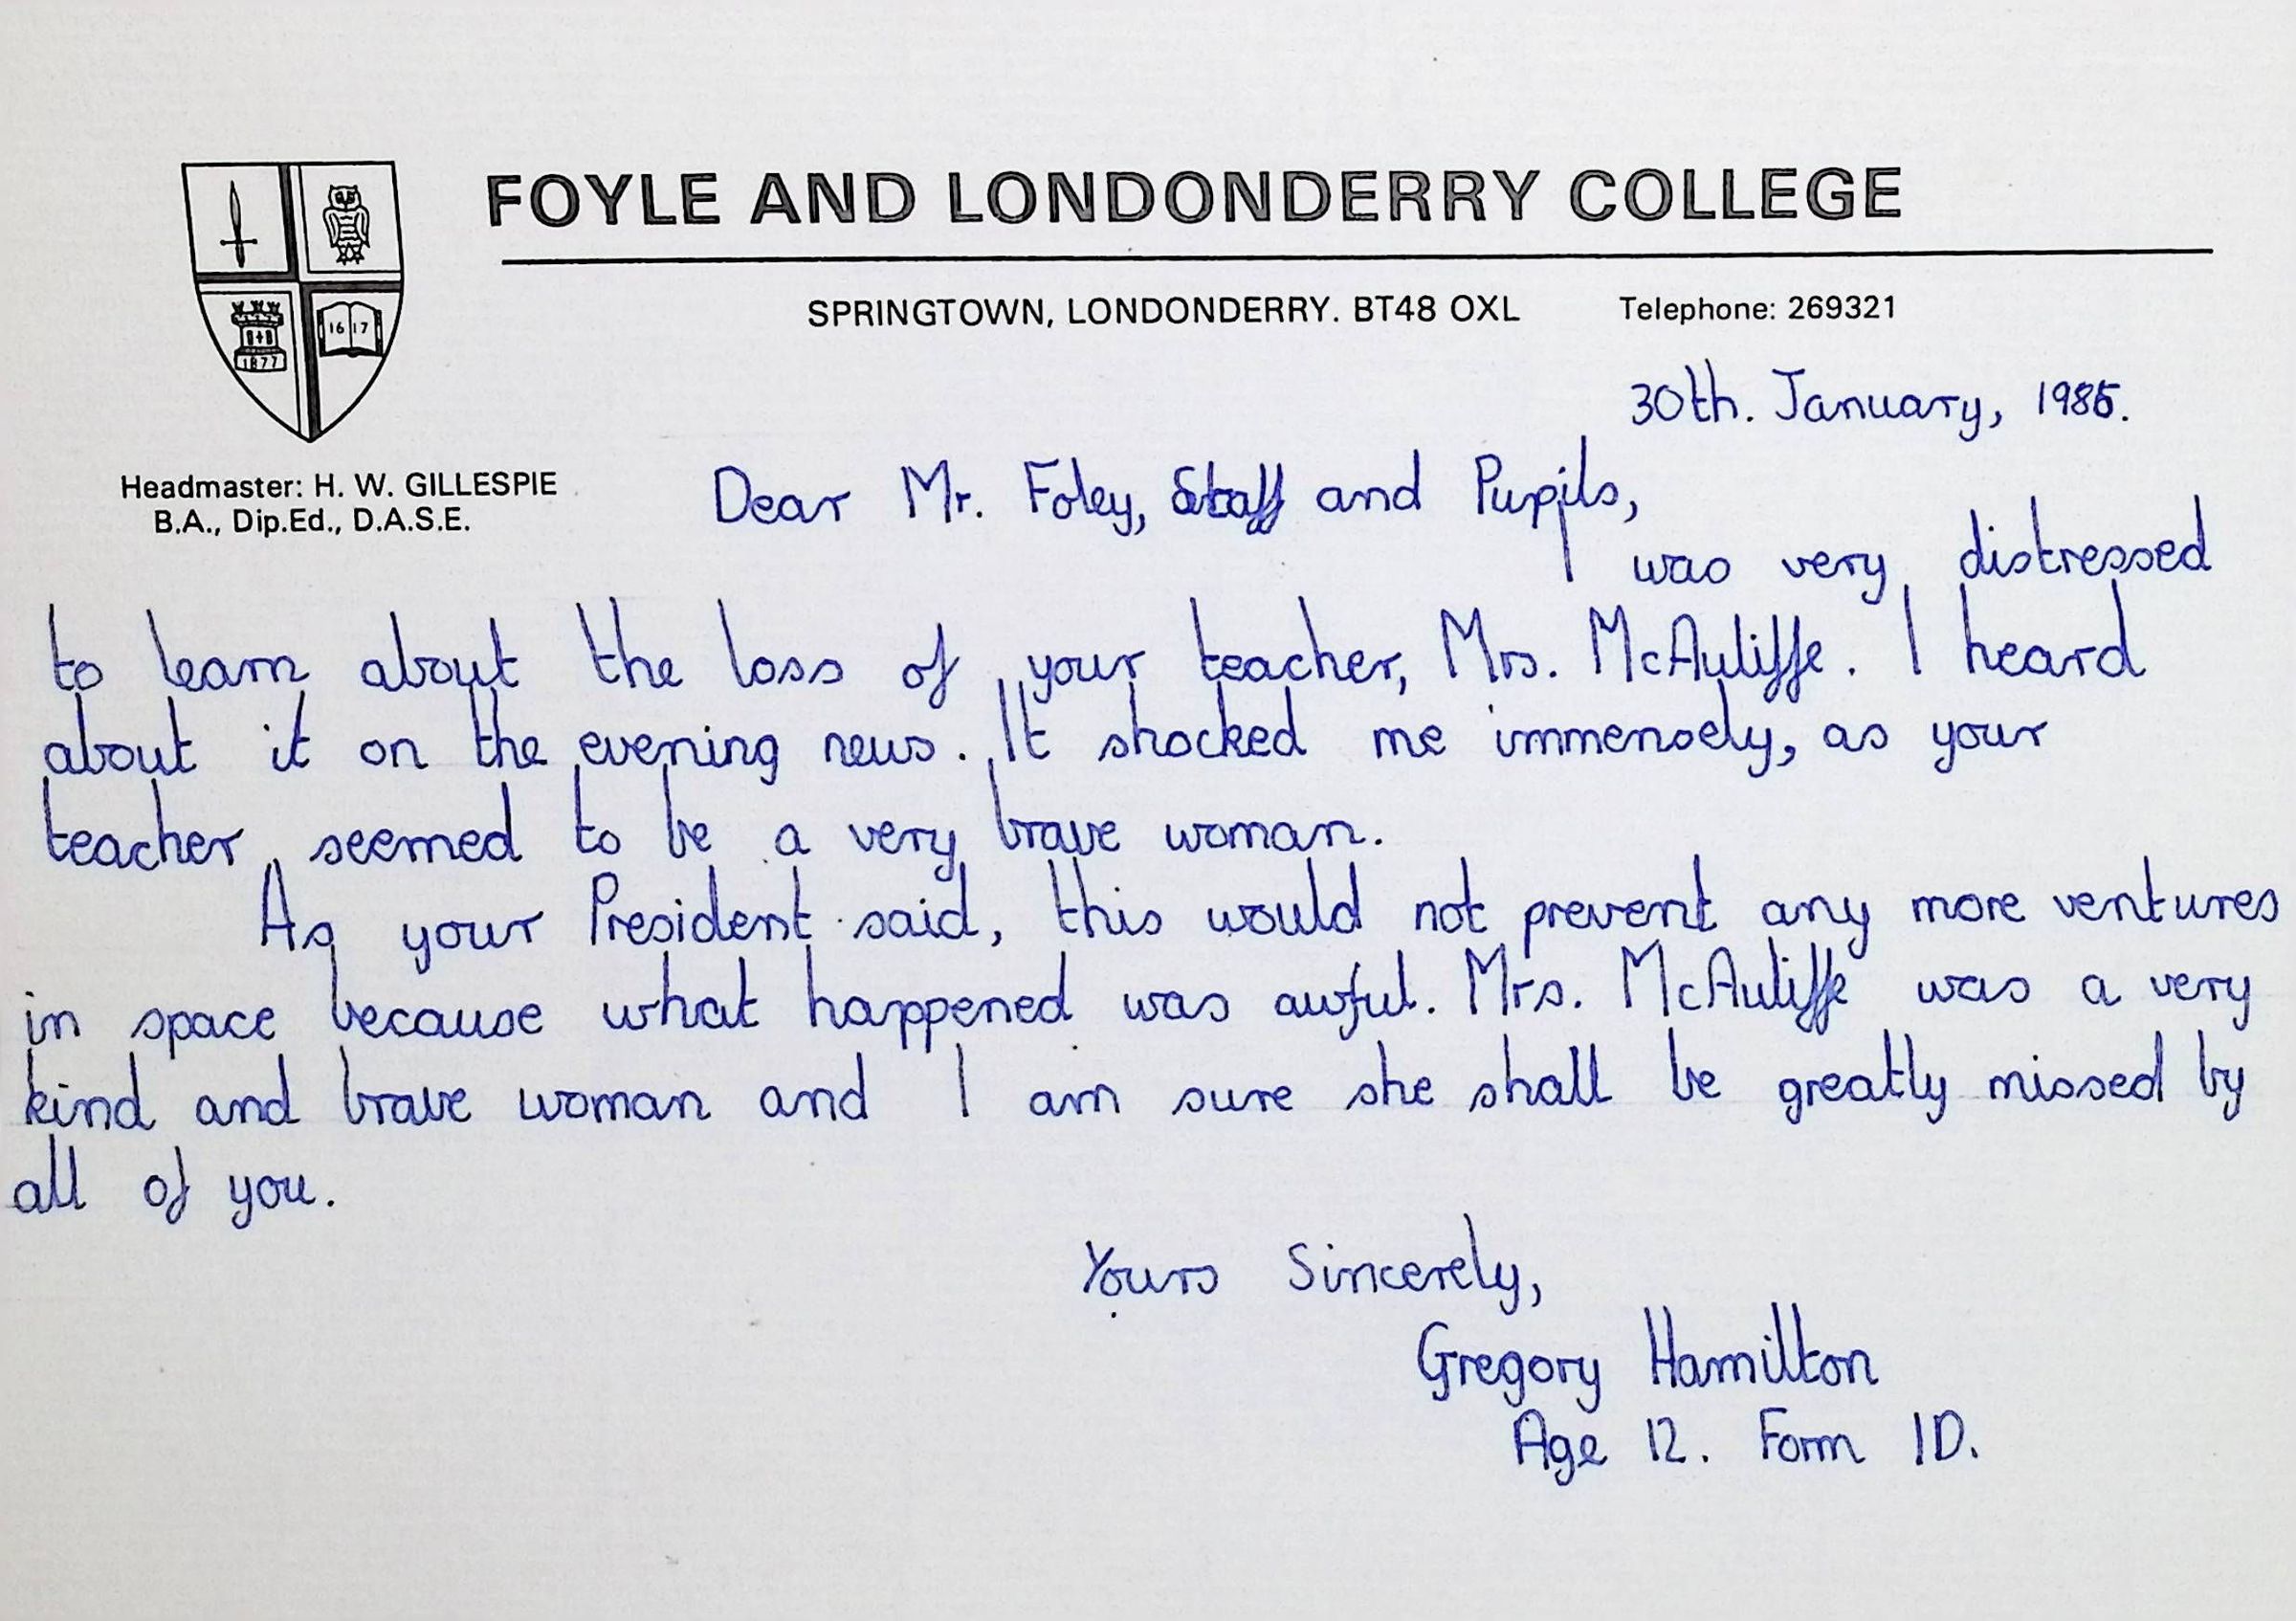 FOYLE AND LONDONDERRY COLLEGE
SPRINGTOWN, LONDONDERRY. BT48 OXL Telephone: 269321
16 17
1877
Headmaster: H. W. GILLESPIE
B.A., Dip.Ed., D.A.S.E.
30th. January, 1986.
Dear Mr. Foley, Staff and Pupils,
I was very distressed
to learn about the loss of your teacher, Mrs. McAuliffe. I heard
about it on the evening news. It shocked me immensely, as your
teacher seemed to be a very brave woman.
As your President said, this would not prevent any more ventures
in space because what happened was awful. Mrs. McAuliffe was a very
kind and brave woman and I am sure she shall be greatly missed by
all of you.
Yours Sincerely,
Gregory Hamilton
Age 12. Form 1D.